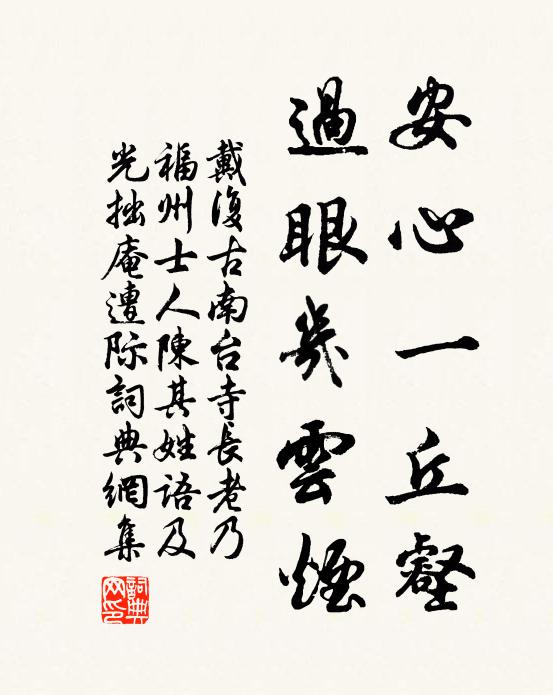 安心一丘壑
過眼幾雲煙
戴復古南台寺長老乃
福州士人陳其姓語及
光拙庵遭际詞典網集
詞典